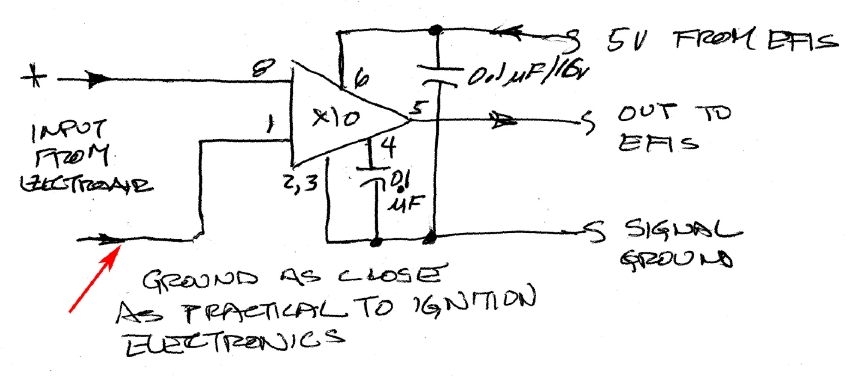 5V FROM EFIS
+
8
6
0.1 µF/16v
X10
5
OUT TO
EFIS
1
INPUT
FROM
ELECTROAIR
4
2,3
0.1
µF
SIGNAL
GROUND
GROUND AS CLOSE
AS PRACTICAL TO IGNITION
ELECTRONICS